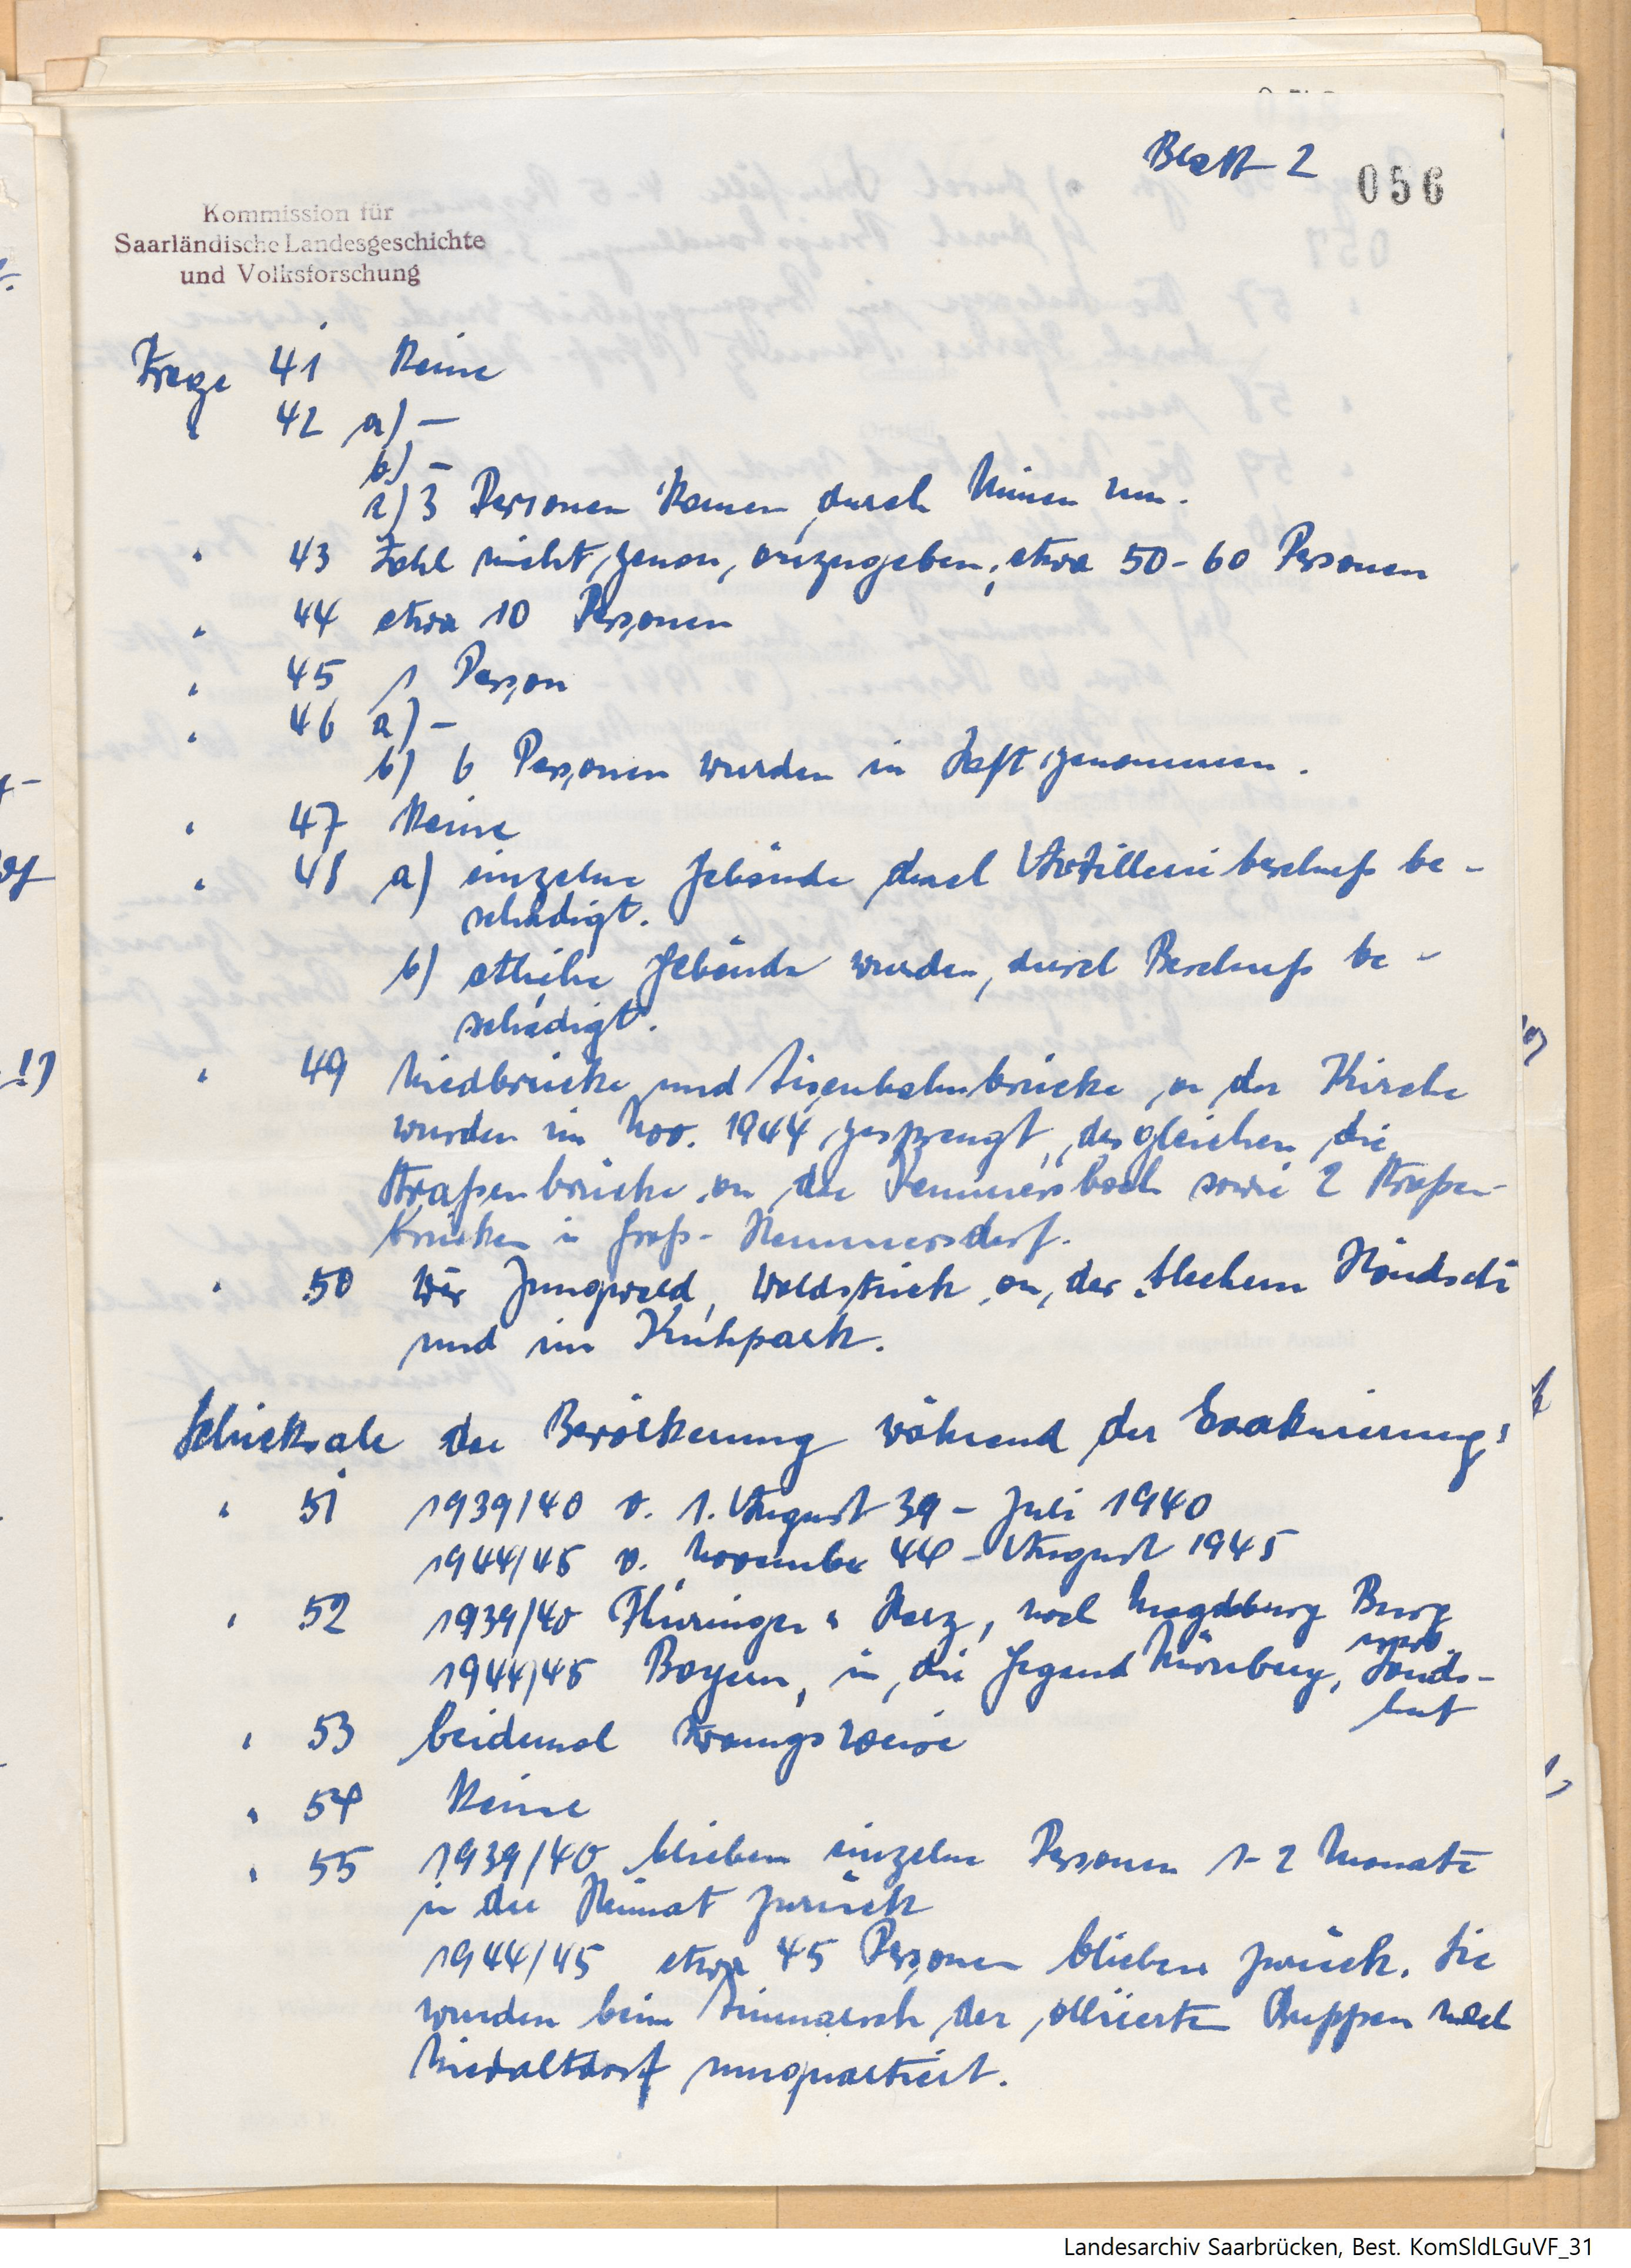 Blatt 2
056
Kommission für
Saarländische Landesgeschichte
und Volksforschung
Frage 41 Keine
" 42 a) –
b) –
c) 3 Personen kamen durch Minen um.
" 43 Zahl nicht genau anzugeben, etwa 50-60 Personen
" 44 etwa 10 Personen
" 45 1 Person
" 46 a) –
b) 6 Personen wurden in Haft genommen.
" 47 Keine
" 48 a) einzelne Gebäude durch Artilleriebeschuß be-
schädigt.
b) etliche Gebäude wurden durch Beschuß be-
schädigt.
" 49 Niedbrücke und Eisenbahnbrücke a der Kirche
wurden im Nov. 1944 gesprengt, desgleichen die
Straßenbrücke an der Remmersbach sowie 2 Straßen-
brücken in Groß-Hemmersdorf.
" 50 Jungwald, Waldstück an der
und im Kuhpark.
Schicksale der Bevölkerung während der Evakuierung:
" 51 1939/40 v. 1. August 39 – Juli 1940
1944/45 v. November 44 – August 1945
" 52 1939/40 Thüringen u Harz, nach Magdeburg Burg
1944/45 Bayern, in die Gegend Nürnberg, Lands-
hut
" 53 beidemal zwangsweise
" 54 Keine
" 55 1939/40 blieben einzelne Personen 1-2 Monate
in der Heimat zurück
1944/45 etwa 45 Personen blieben zurück. Sie
wurden beim Einmarsch der alliierten Truppen nach
Niedaltdorf umquartiert.
Landesarchiv Saarbrücken, Best. KomSldLGuVF_31